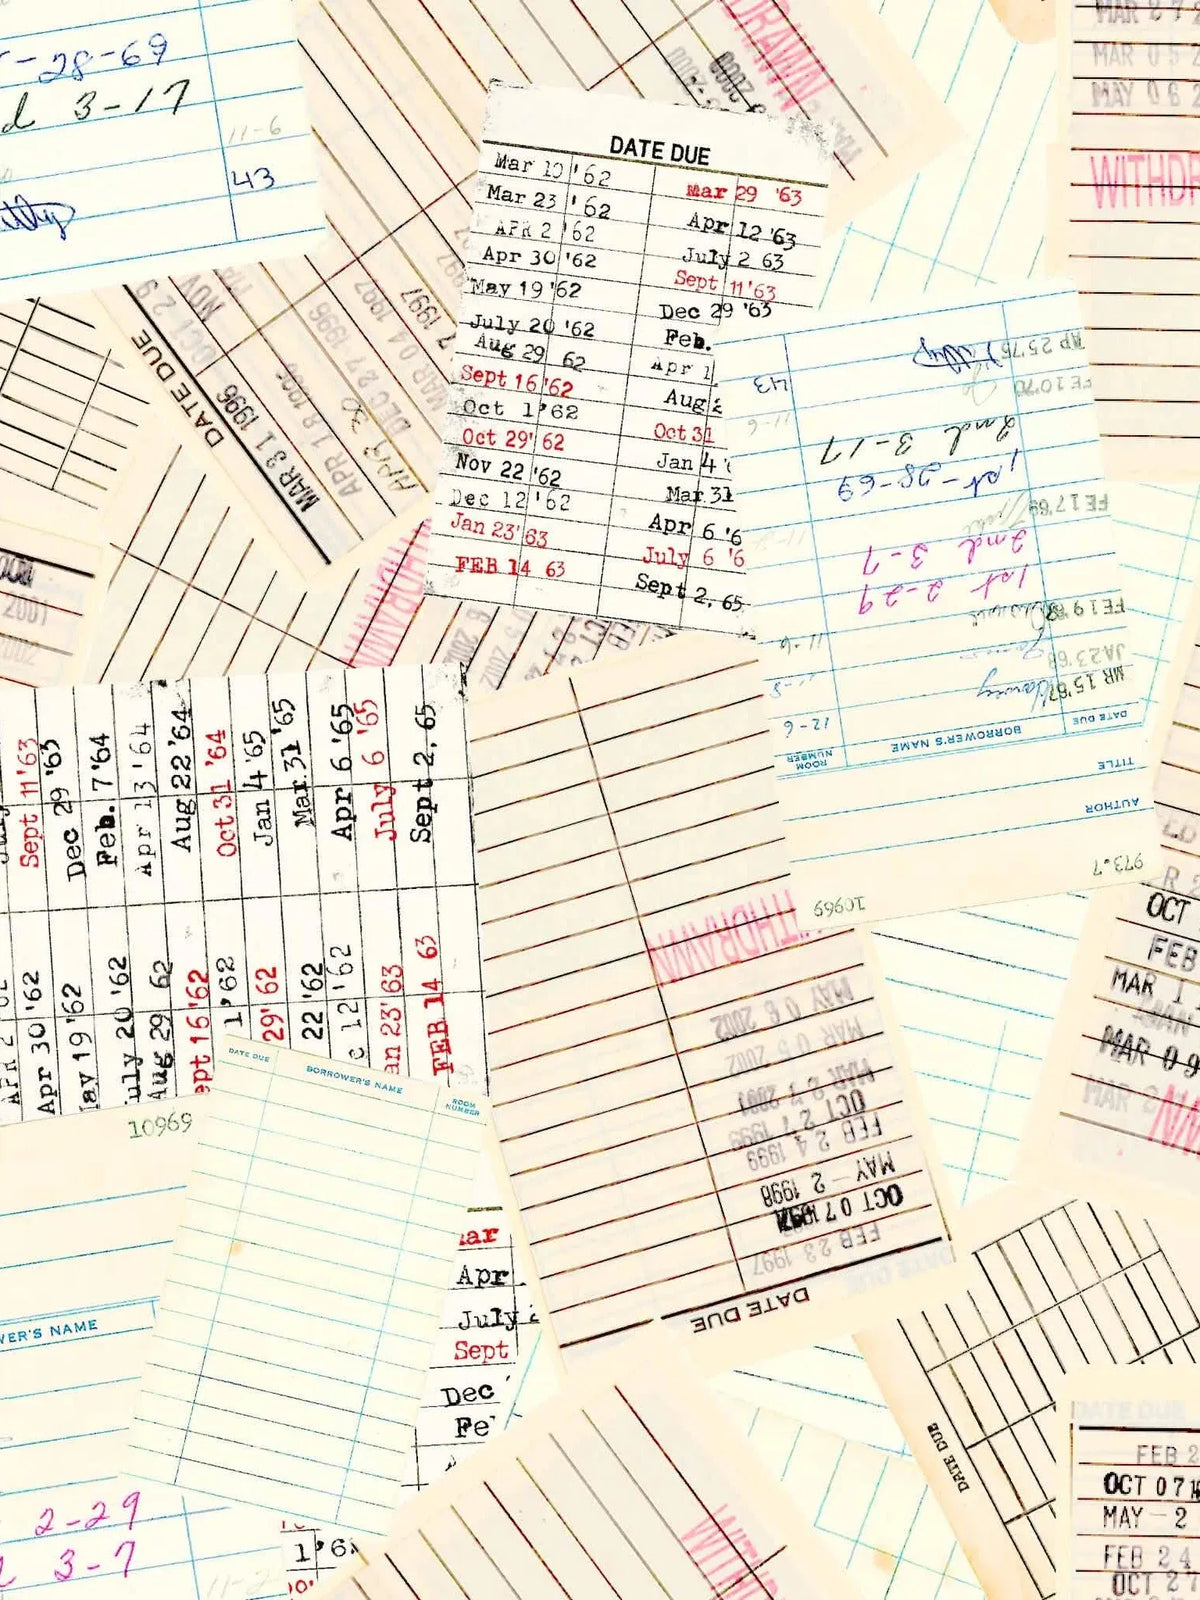 1st-28-69
2nd 3-17
11-6
43
WITHDRAWN
2000
MAR 27 2
MAR 05 2
MAY 06 2
WITHDR
DATE DUE
Mar 10 '62
Mar 23 '62
APR 2 '62
Apr 30 '62
May 19 '62
July 20 '62
Aug 29 62
Sept 16 '62
Oct 1 '62
Oct 29 '62
Nov 22 '62
Dec 12 '62
Jan 23 '63
FEB 14 63
Mar 29 '63
Apr 12 '63
July 2 63
Sept 11 '63
Dec 29 '63
Feb.
Apr 1
Aug 2
Oct 31
Jan 4 '
Mar 31
Apr 6 '6
July 6 '6
Sept 2, 65
DATE DUE
OCT 29
NOV
MAR 31 1996
APR 18 1996
APR 30
DEC 27 1996
MAR 04 1997
7 1997
WITHDRAWN
2001
2002
973.7
10969
AUTHOR
TITLE
DATE DUE
BORROWER'S NAME
ROOM NUMBER
MR 15 '67
12-6
JA 23 '68
11-5
FE 19 '68
11-6
1st 2-29
2nd 3-7
FE 17 '69
1st-28-69
2nd 3-17
FE 10 '70
11-6
AP 25 '75
43
Sept 11 '63
Dec 29 '63
Feb. 7 '64
Apr 13 '64
Aug 22 '64
Oct 31 '64
Jan 4 '65
Mar 31 '65
Apr 6 '65
July 6 '65
Sept 2, 65
APR 2 '62
Apr 30 '62
May 19 '62
July 20 '62
Aug 29 62
ept 16 '62
1 '62
29 '62
22 '62
c 12 '62
an 23 '63
FEB 14 63
DATE DUE
FEB 23 1997
OCT 07 1997
MAY - 2 1998
FEB 24 1999
OCT 27 1999
MAR 27 2001
MAR 05 2002
MAY 06 2002
WITHDRAWN
OCT
FEB
MAR 1
MAR 09
MAR 2
10969
DATE DUE
BORROWER'S NAME
ROOM NUMBER
WER'S NAME
2-29
3-7
11-2
Mar
Apr
July 2
Sept
Dec
Fe
1 '6
WITHD
DATE DUE
DATE DUE
FEB 2
OCT 07 1
MAY - 2
FEB 24
OCT 27